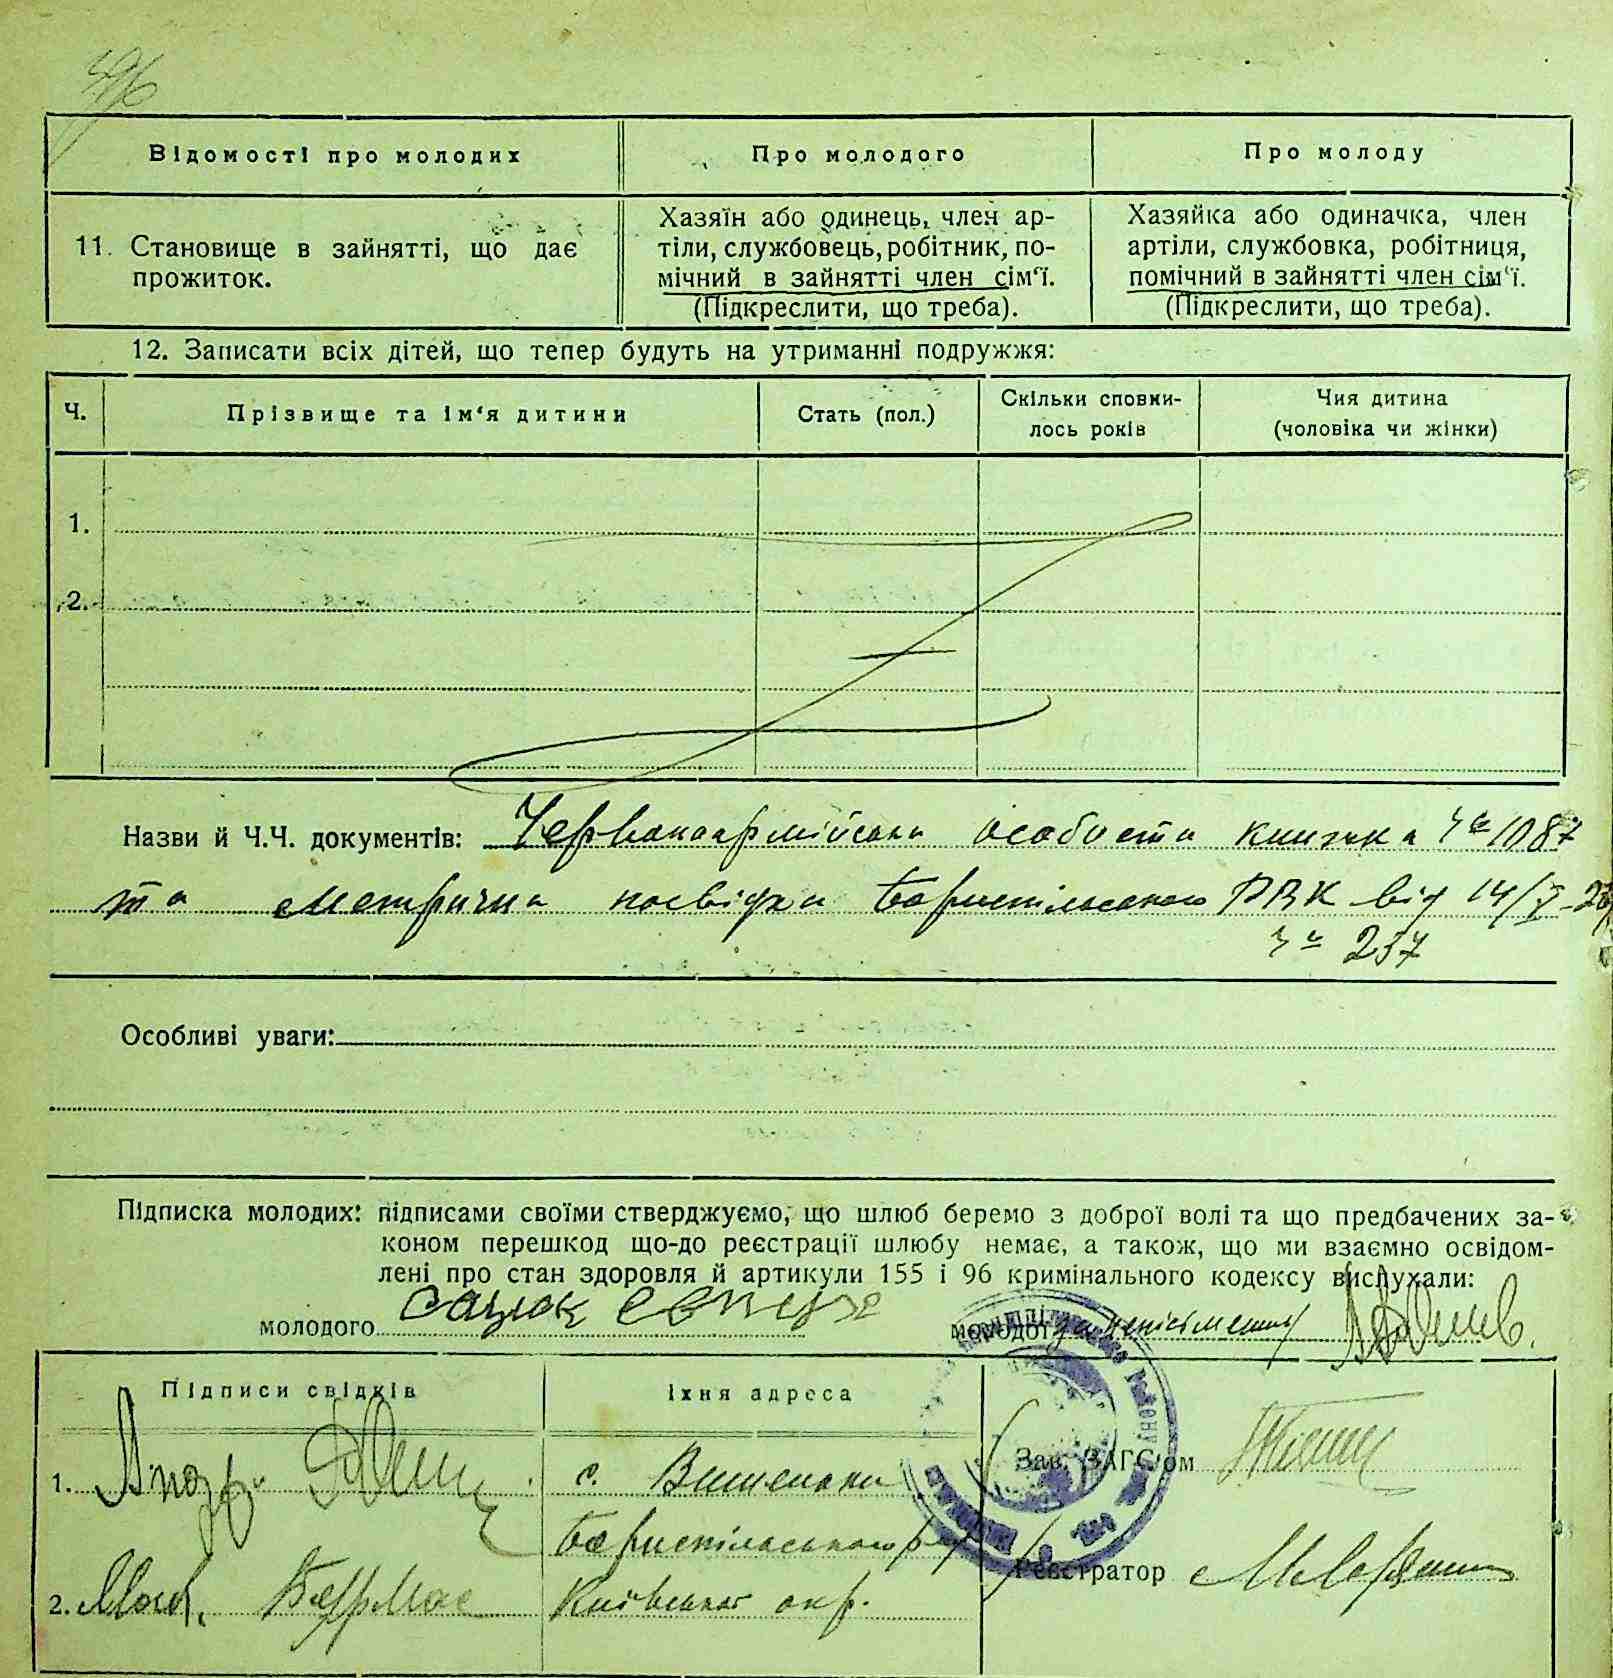 496
Відомості про молодих Про молодого Про молоду
11. Становище в зайнятті, що дає прожиток.
Хазяїн або одинець, член ар-
тіли, службовець, робітник, по-
мічний в зайнятті член сім'ї.
(Підкреслити, що треба).
Хазяйка або одиначка, член
артіли, службовка, робітниця,
помічний в зайнятті член сім'ї.
(Підкреслити, що треба).
12. Записати всіх дітей, що тепер будуть на утриманні подружжя:
Ч. Прізвище та ім'я дитини Стать (пол.) Скільки сповни-
лось років Чия дитина
(чоловіка чи жінки)
1.
2.
Назви й Ч.Ч. документів: Червоноармійська особиста книжка Ч 1087
та метрична посвідка Бориспільського РВК від 14/
Ч 237
Особливі уваги:
Підписка молодих: підписами своїми стверджуємо, що шлюб беремо з доброї волі та що предбачених за-
коном перешкод що-до реєстрації шлюбу немає, а також, що ми взаємно освідом-
лені про стан здоровля й артикули 155 і 96 кримінального кодексу вислухали:
молодого Сацюк молодої
Підписи свідків Їхня адреса
1. с. Вишеньки Зав. ЗАГС'ом
Бориспільського р-у
2. Київської окр. Реєстратор